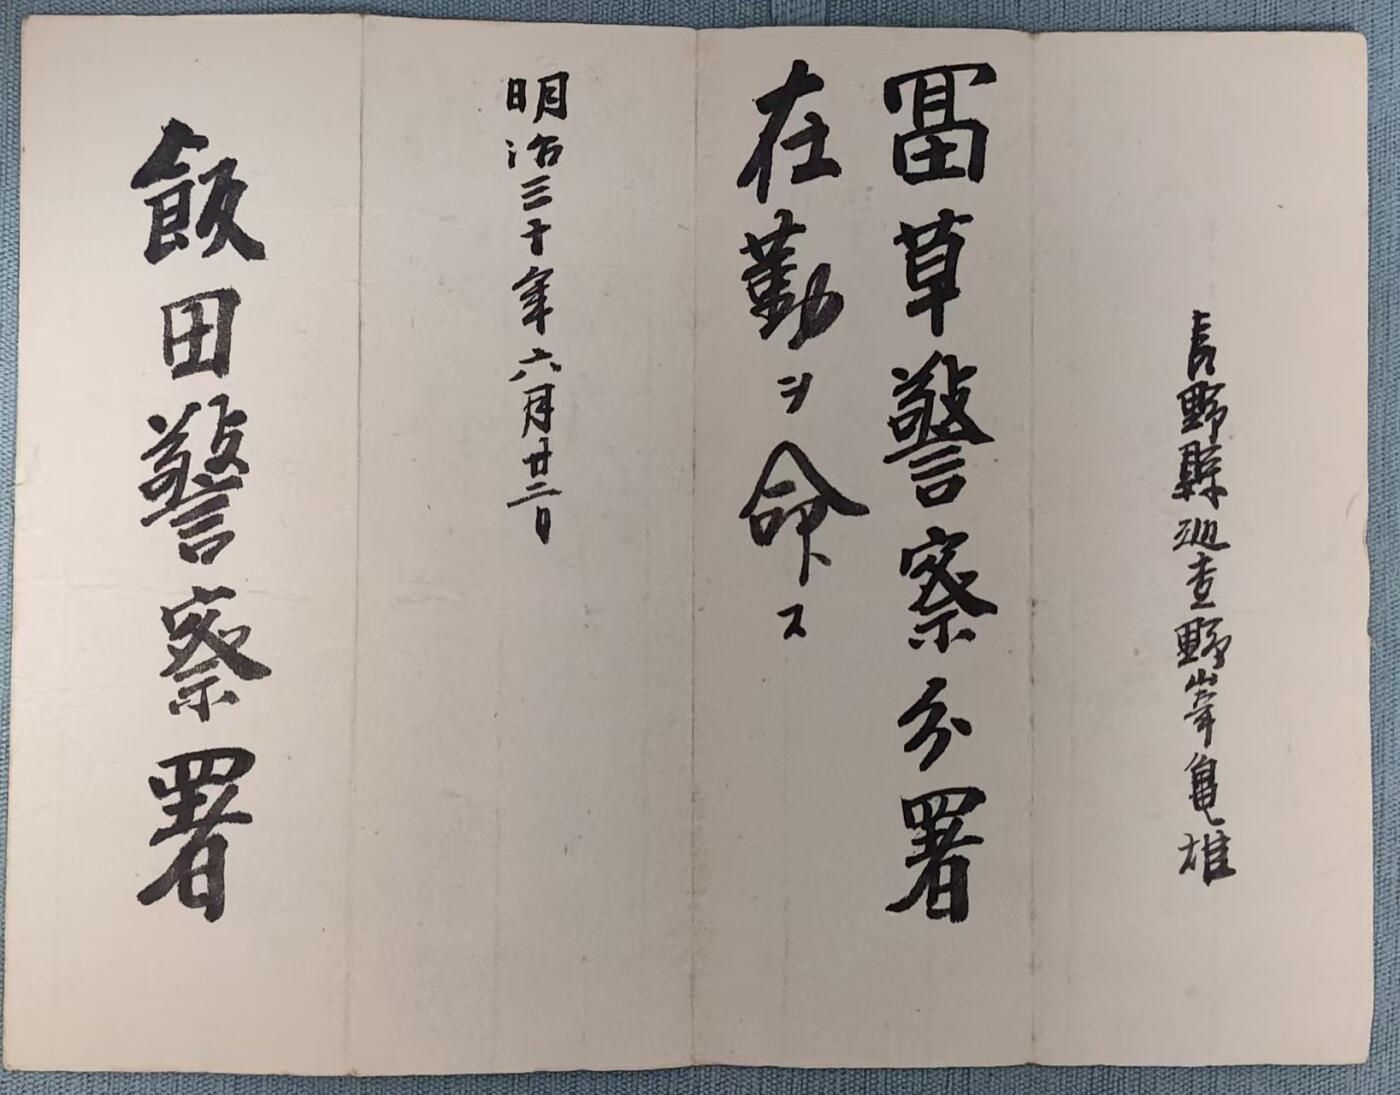 長野縣巡査野牽亀雄
冨草警察分署
在勤ヲ命ス
明治三十年六月廿二日
飯田警察署